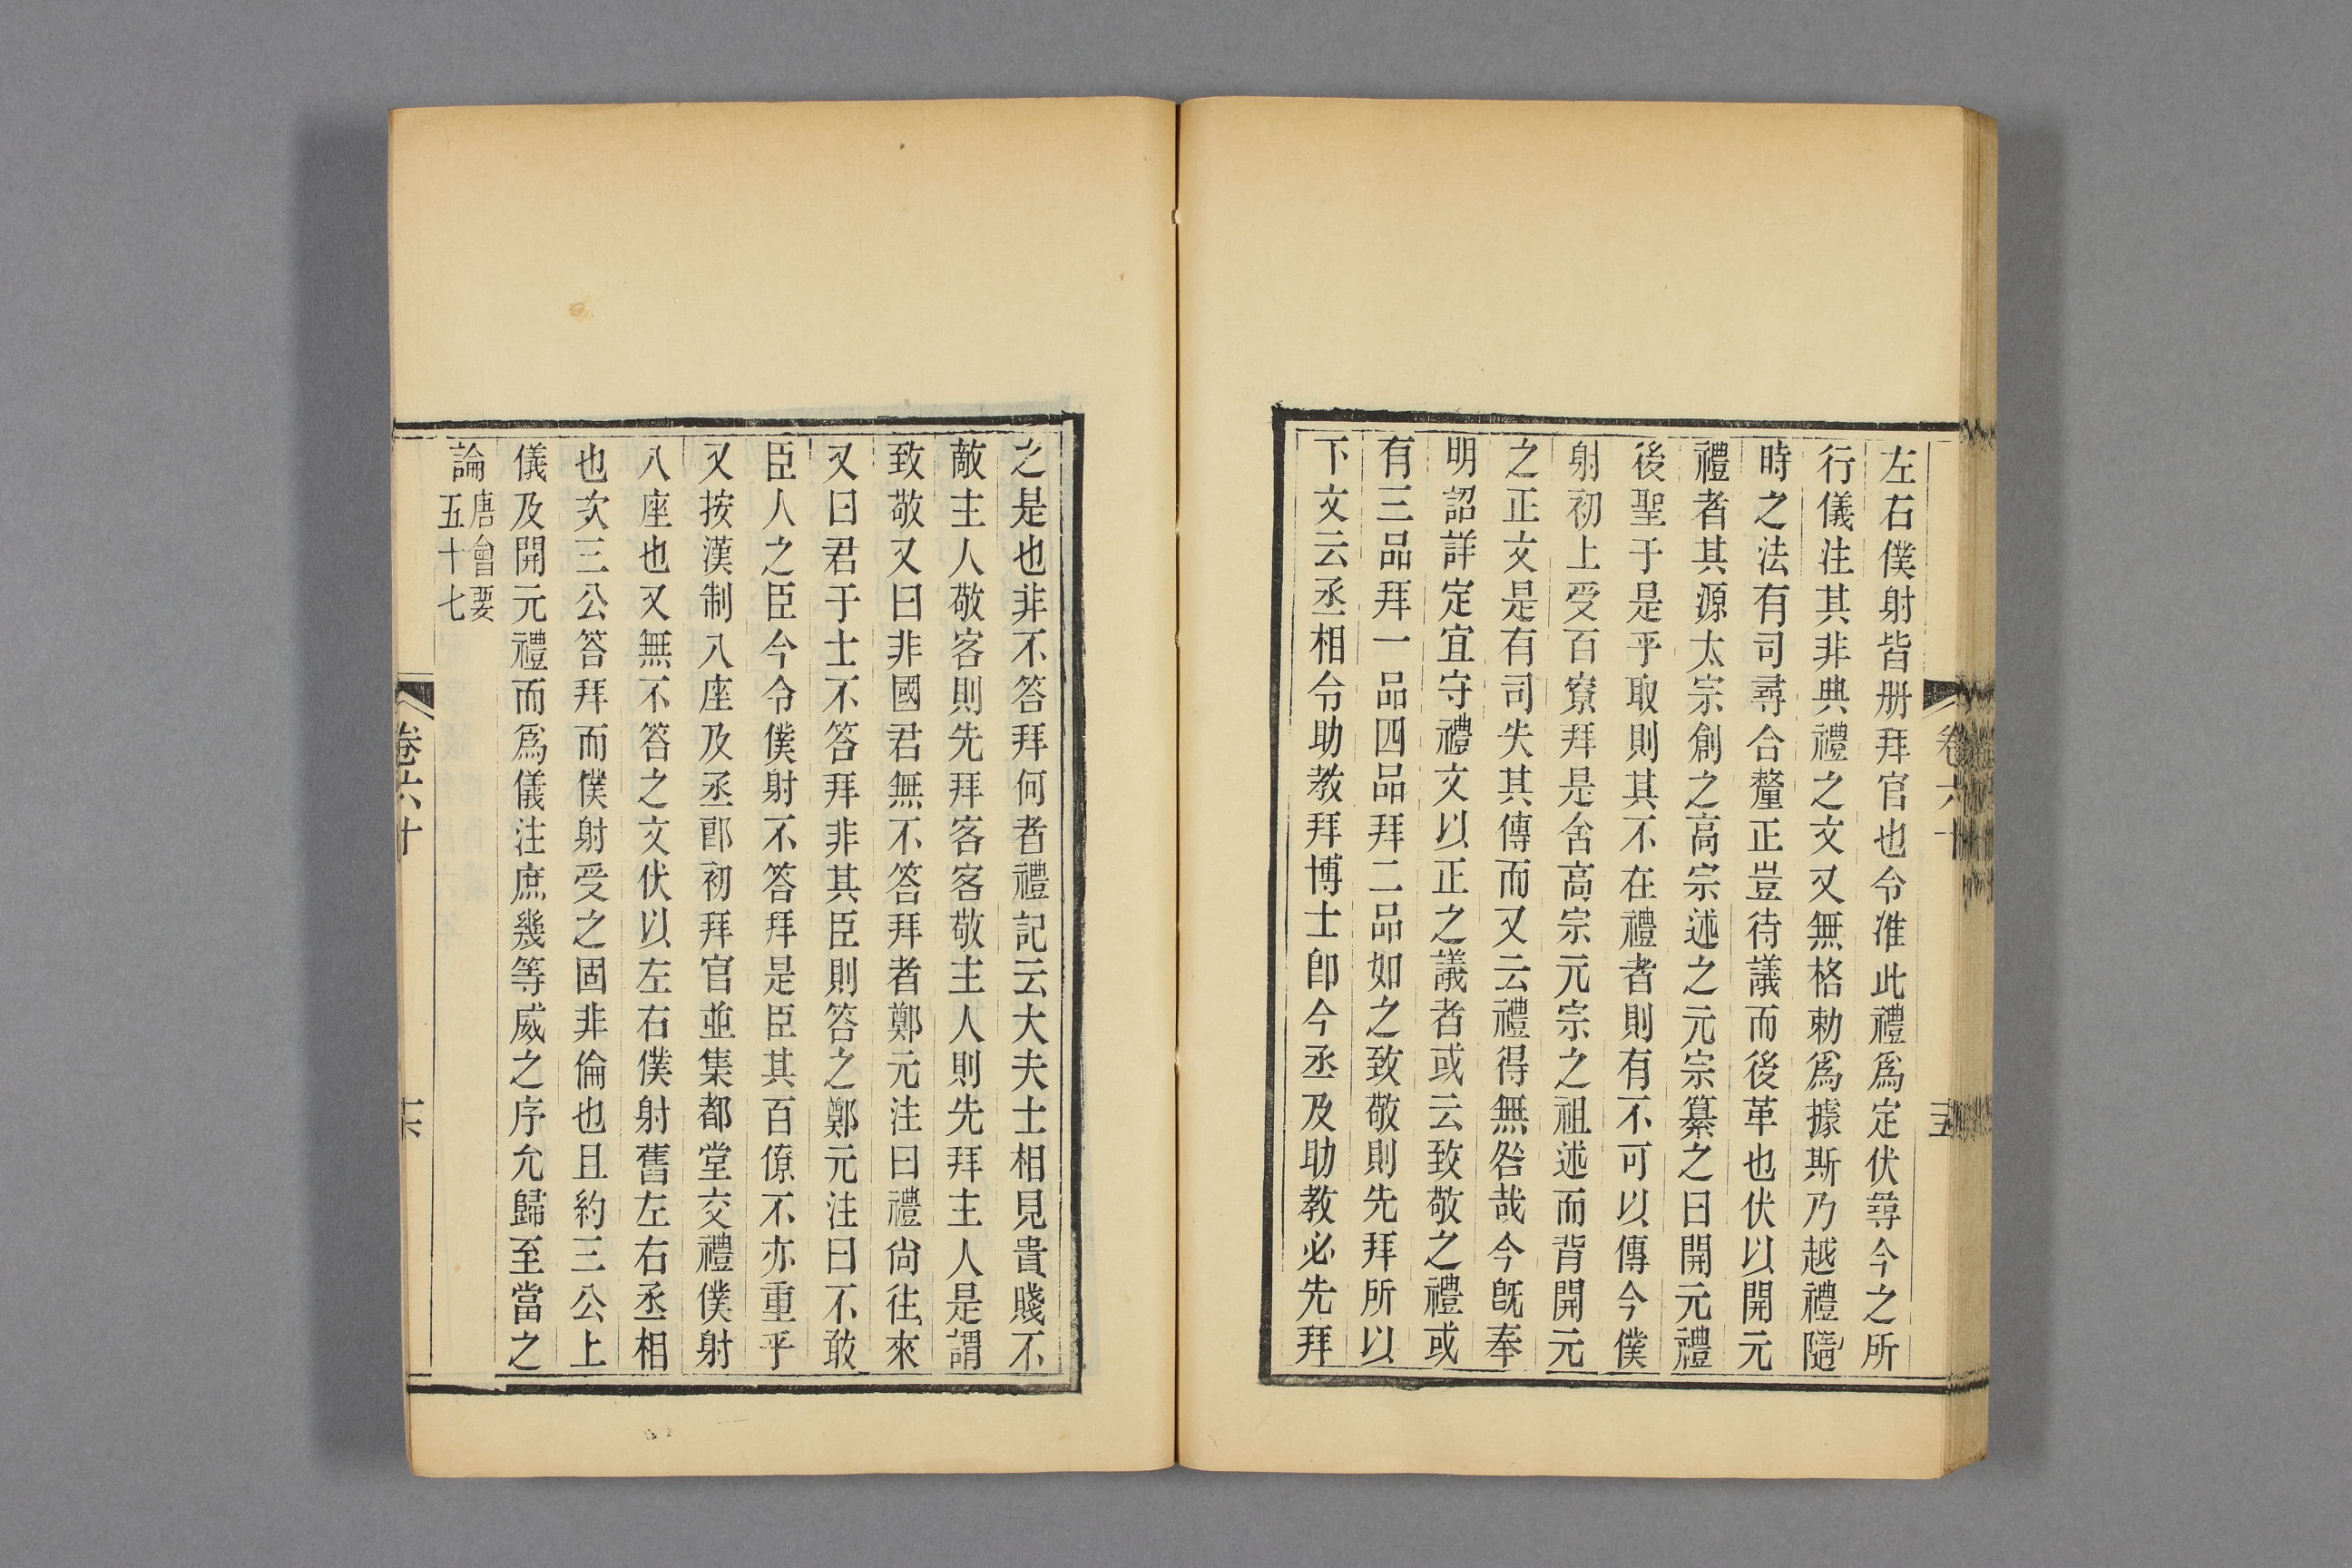 左右僕射皆册拜官也令准此禮爲定伏尋今之所
行儀注其非典禮之文又無格勅爲據斯乃越禮隨
時之法有司尋合釐正豈待議而後革也伏以開元
禮者其源太宗創之高宗述之元宗纂之曰開元禮
後聖于是乎取則其不在禮者則有不可以傳今僕
射初上受百寮拜是舍高宗元宗之祖述而背開元
之正文是有司失其傳而又云禮得無咎哉今既奉
明詔詳定宜守禮文以正之議者或云致敬之禮或
有三品拜一品四品拜二品如之致敬則先拜所以
下文云丞相令助教拜博士卽今丞及助教必先拜
卷六十
五
之是也非不答拜何者禮記云大夫士相見貴賤不
敵主人敬客則先拜客客敬主人則先拜主人是謂
致敬又曰非國君無不答拜者鄭元注曰禮尙往來
又曰君于士不答拜非其臣則答之鄭元注曰不敢
臣人之臣今令僕射不答拜是臣其百僚不亦重乎
又按漢制八座及丞郎初拜官並集都堂交禮僕射
八座也又無不答之文伏以左右僕射舊左右丞相
也次三公答拜而僕射受之固非倫也且約三公上
儀及開元禮而爲儀注庶幾等威之序允歸至當之
論唐會要
五十七
卷六十